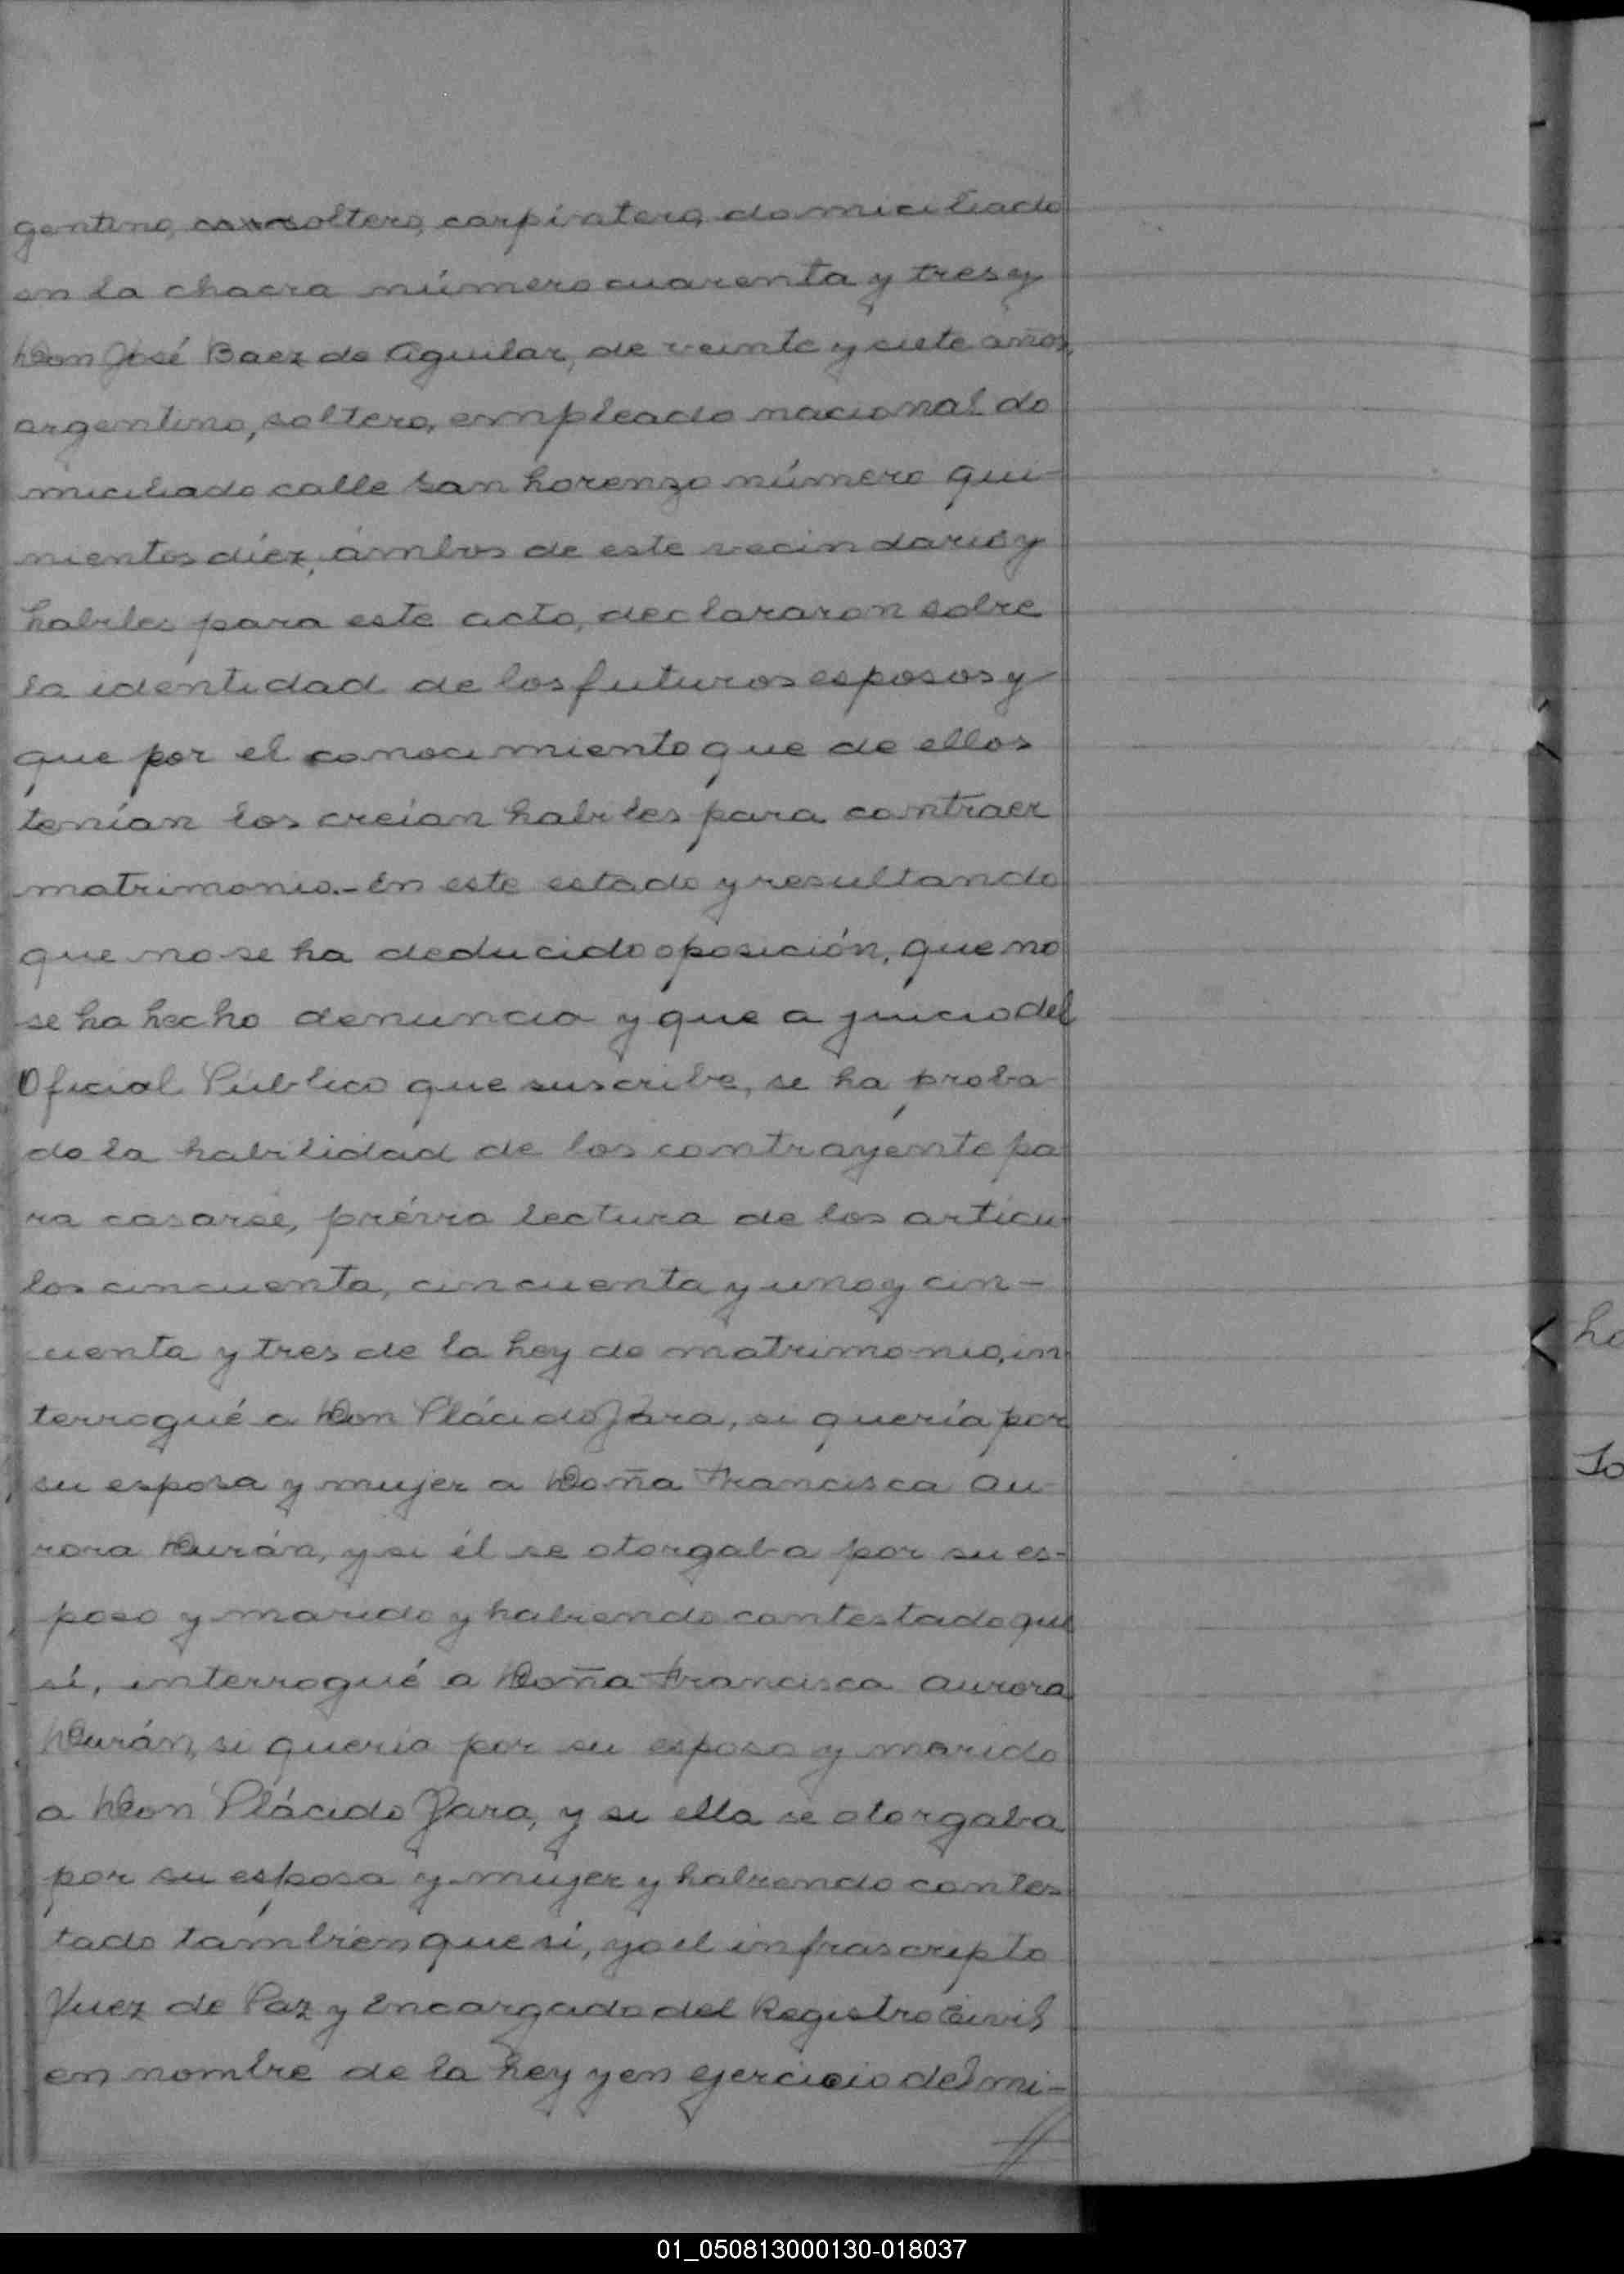 gentino, soltero, carpintero, domiciliado
en la chacra número cuarenta y tres y
Don José Baez de Aguilar, de veinte y siete años,
argentino, soltero, empleado nacional do
miciliado calle San Lorenzo número qui-
nientos diéz, ámbos de este vecindario y
habiles para este acto, declararon sobre
la identidad de los futuros esposos y
que por el conocimiento que de ellos
tenían los creían habiles para contraer
matrimonio.- En este estado y resultando
que no se ha deducido oposición, que no
se ha hecho denuncia y que a juicio del
Oficial Público que suscribe, se ha proba
do la habilidad de los contrayente pa
ra casarse, prévia lectura de los artícu-
los cincuenta, cincuenta y uno y cin-
cuenta y tres de la Ley de matrimonio, in-
terrogué a Don Plácido Jara, si quería por
su esposa y mujer a Doña Francisca Au-
rora Durán, y si él se otorgaba por su es-
poso y marido y habiendo contestado que
sí, interrogué a Doña Francisca Aurora
Durán, si queria por su esposo y marido
a Don Plácido Jara, y si ella se otorgaba
por su esposa y mujer y habiendo contes
tado también que sí, yo el infrascripto
Juez de Paz y Encargado del Registro Civil
en nombre de la Ley y en ejercicio del mi-
01_050813000130-018037